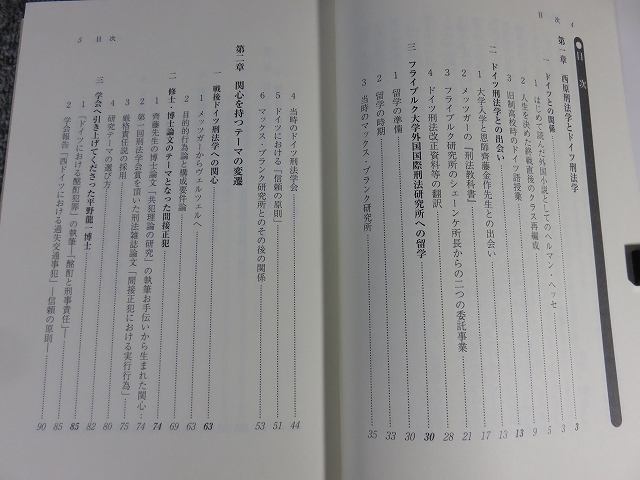 目次 4
目次
第一章 西原刑法学とドイツ刑法学
一 ドイツとの関係 3
1 はじめて読んだ外国小説としてのヘルマン・ヘッセ 3
2 人生を決めた終戦直後のクラス再編成 5
3 旧制高校時のドイツ語授業 9
二 ドイツ刑法学との出会い 13
1 大学入学と恩師齊藤金作先生との出会い 13
2 メッツガーの『刑法教科書』 17
3 フライブルク研究所のシェーンケ所長からの二つの委託事業 21
4 ドイツ刑法改正資料等の翻訳 28
三 フライブルク大学外国国際刑法研究所への留学 30
1 留学の準備 30
2 留学の時期 33
3 当時のマックス・プランク研究所 35
5 目次
4 当時のドイツ刑法学会 44
5 ドイツにおける「信頼の原則」 51
6 マックス・プランク研究所とのその後の関係 53
第二章 関心を持つテーマの変遷
一 戦後ドイツ刑法学への関心 63
1 メッツガーからヴェルツェルへ 63
2 目的的行為論と構成要件論 69
二 修士・博士論文のテーマとなった間接正犯 74
1 齊藤先生の博士論文「共犯理論の研究」の執筆お手伝いから生まれた関心 74
2 第一回刑法学会賞を頂いた刑法雑誌論文「間接正犯における実行行為」 75
3 厳格責任説の採用 80
4 研究テーマの選び方 82
三 学会へ引き上げてくださった平野龍一博士 85
1 「ドイツにおける酩酊犯罪」の執筆―「酩酊と刑事責任」 85
2 学会報告「西ドイツにおける過失交通事犯」―信頼の原則 90